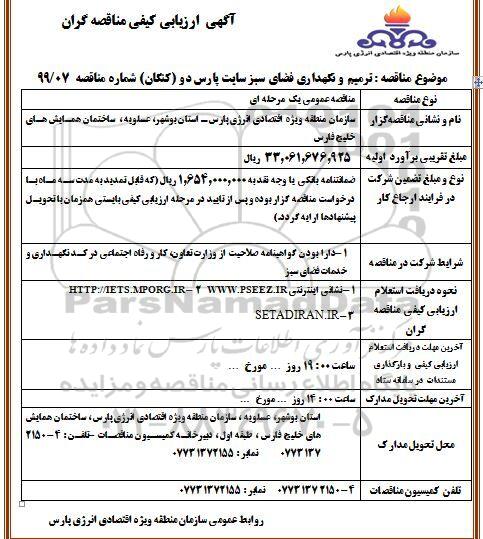 آگهی ارزیابی کیفی مناقصه گران
سازمان منطقه ویژه اقتصادی انرژی پارس
موضوع مناقصه : ترمیم و نگهداری فضای سبز سایت پارس دو (کنگان) شماره مناقصه ۹۹/۰۷
نوع مناقصه
مناقصه عمومی یک مرحله ای
نام و نشانی مناقصه گزار
سازمان منطقه ویژه اقتصادی انرژی پارس – استان بوشهر، عسلویه ، ساختمان همایش های
خلیج فارس
مبلغ تقریبی برآورد اولیه
۳۳,۰۶۱,۶۷۶,۹۲۵ ریال
نوع و مبلغ تضمین شرکت
در فرایند ارجاع کار
ضمانتنامه بانکی یا وجه نقد به ۱,۶۵۴,۰۰۰,۰۰۰ ریال (که قابل تمدید به مدت سه ماه با
درخواست مناقصه گزار بوده و پس از تایید در مرحله ارزیابی کیفی بایستی همزمان با تحویل
پیشنهادها ارایه گردد.)
شرایط شرکت در مناقصه
۱–دارا بودن گواهینامه صلاحیت از وزارت تعاون، کار و رفاه اجتماعی در کد نگهداری و
خدمات فضای سبز
نحوه دریافت استعلام
ارزیابی کیفی مناقصه
گران
۱–نشانی اینترنتی WWW.PSEEZ.IR ۲ –HTTP://IETS.MPORG.IR
۳–SETADIRAN.IR
آخرین مهلت دریافت استعلام
ارزیابی کیفی و بارگذاری
مستندات در سامانه ستاد
ساعت ۱۹:۰۰ روز ... مورخ ...
آخرین مهلت تحویل مدارک
ساعت ۱۴:۰۰ روز ... مورخ ...
محل تحویل مدارک
استان بوشهر، عسلویه ، سازمان منطقه ویژه اقتصادی انرژی پارس، ساختمان همایش
های خلیج فارس ، طبقه اول، دبیرخانه کمیسیون مناقصات –تلفن: ۴–۲۱۵۰
۰۷۷۳۱۳۷ نمابر: ۰۷۷۳۱۳۷۲۱۵۵
تلفن کمیسیون مناقصات
۴–۰۷۷۳۱۳۷۲۱۵۰ نمابر: ۰۷۷۳۱۳۷۲۱۵۵
روابط عمومی سازمان منطقه ویژه اقتصادی انرژی پارس
ParsNamadData